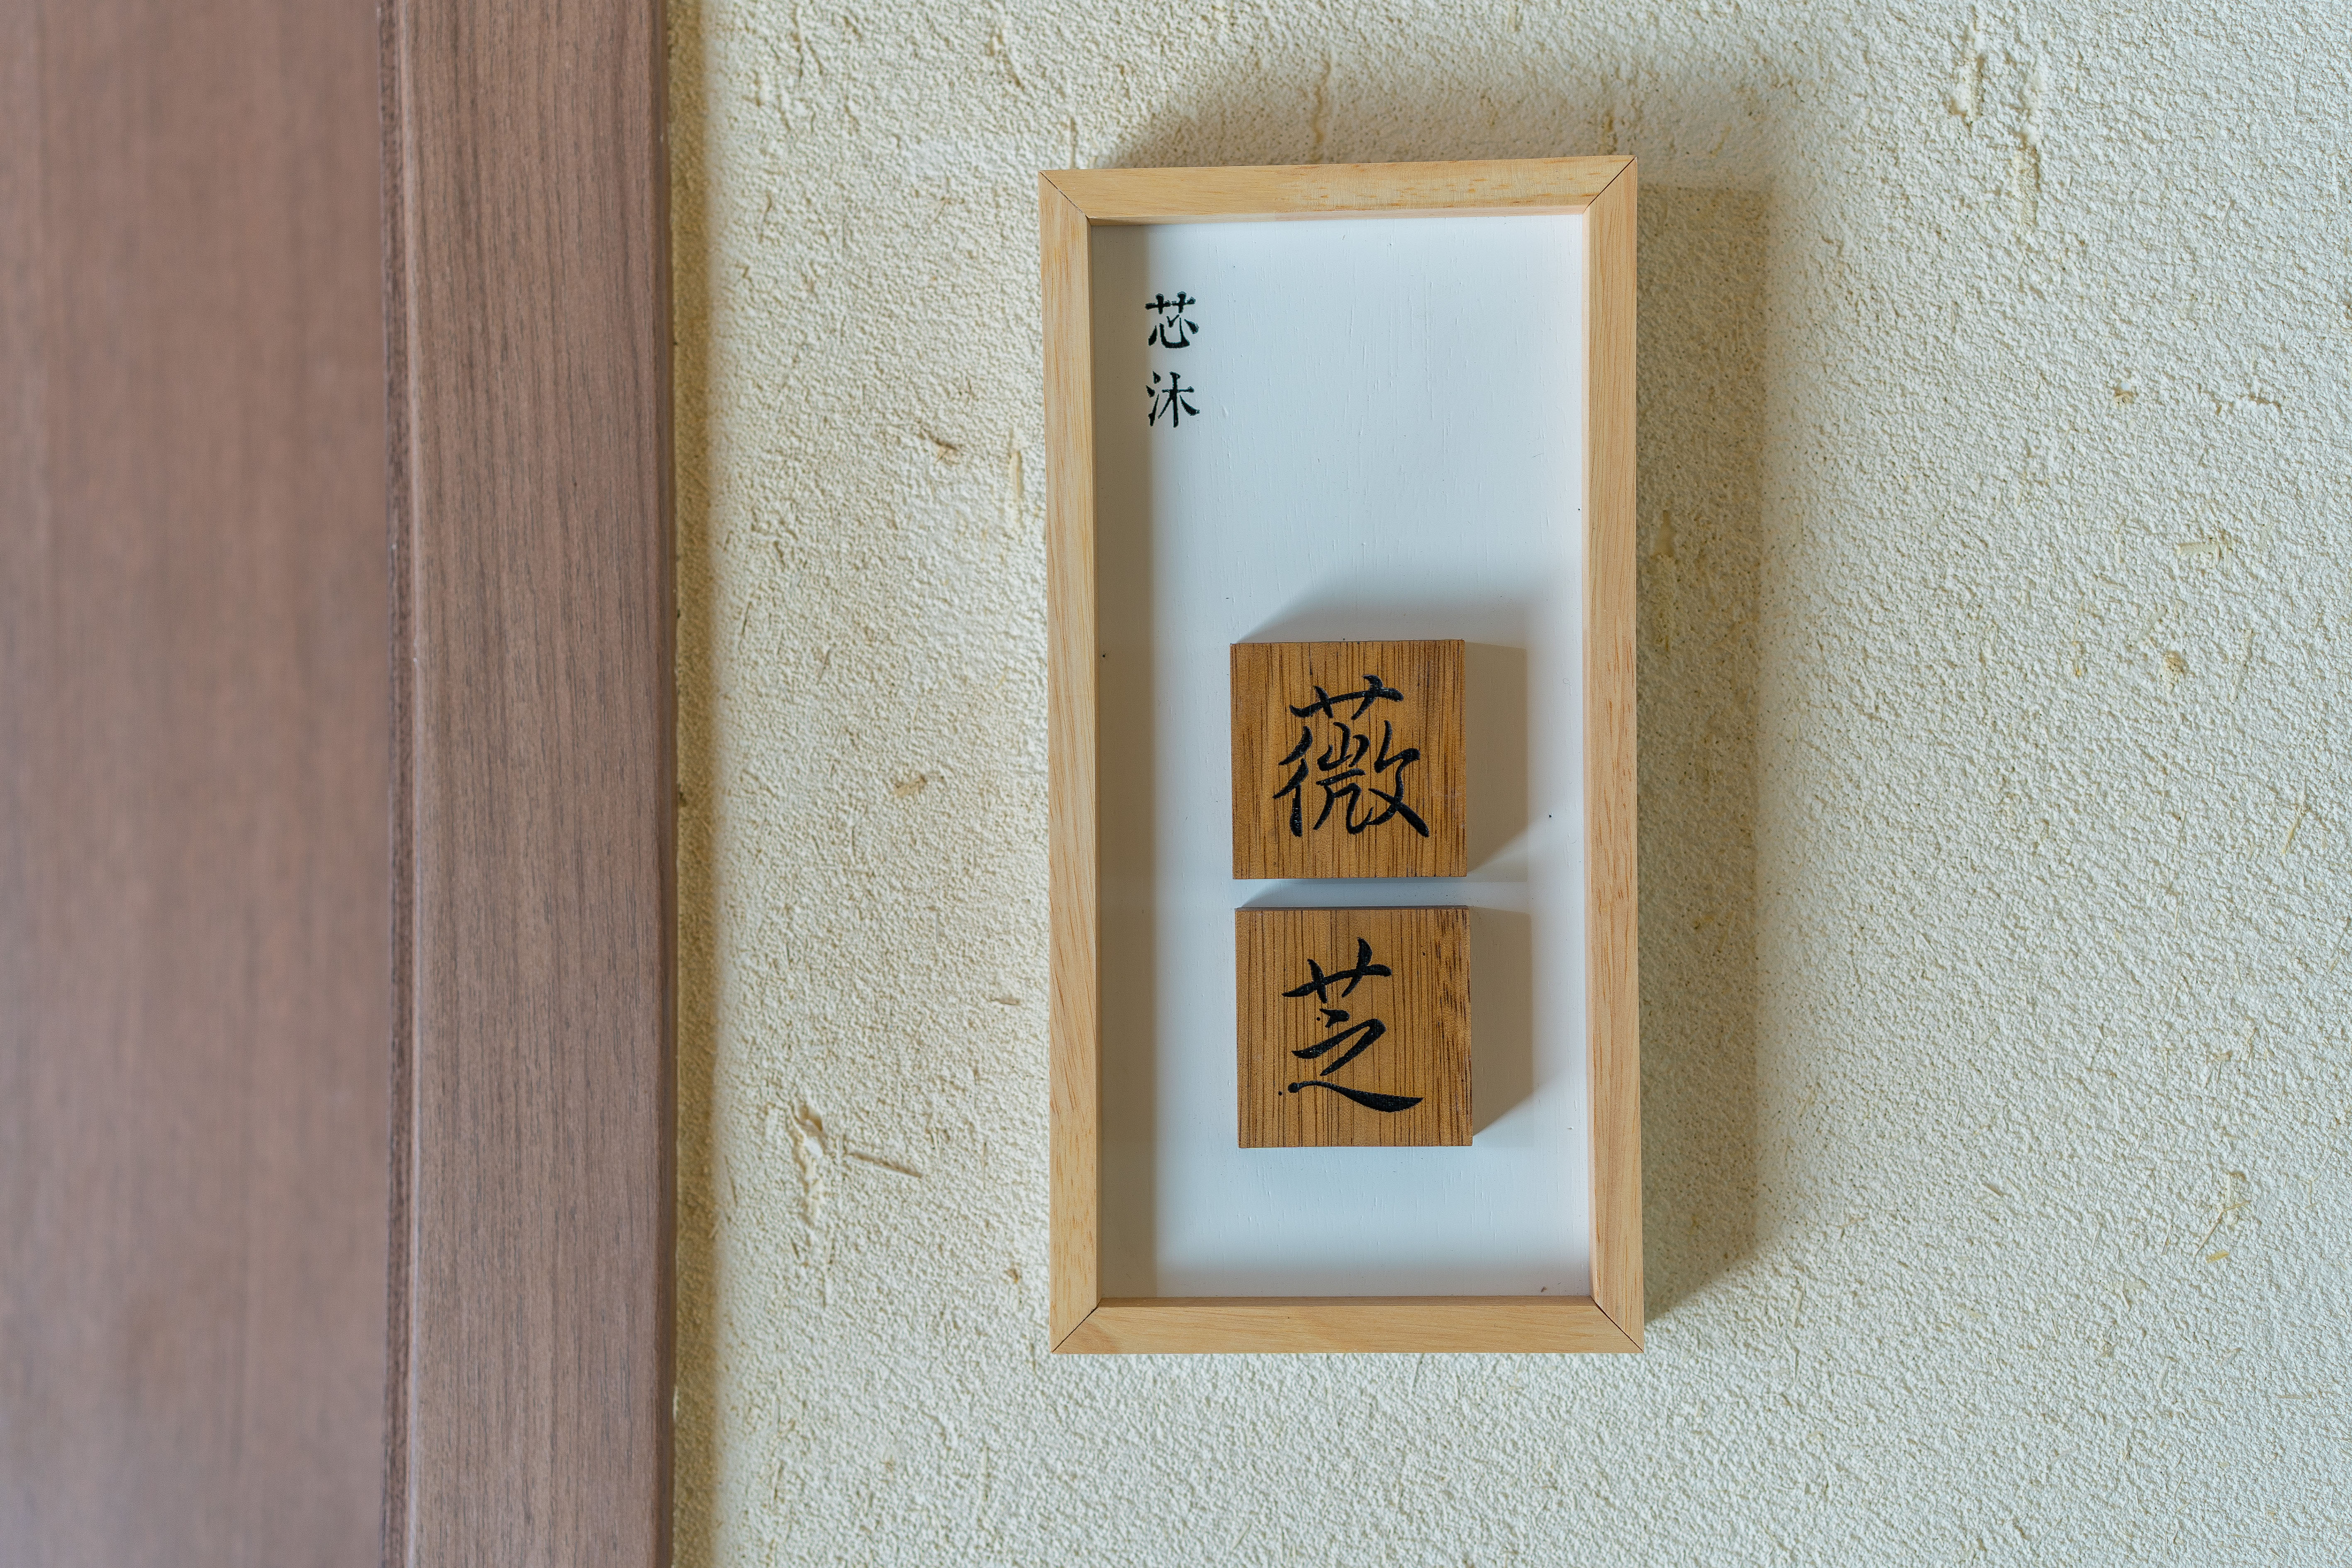 芯沐
薇芝